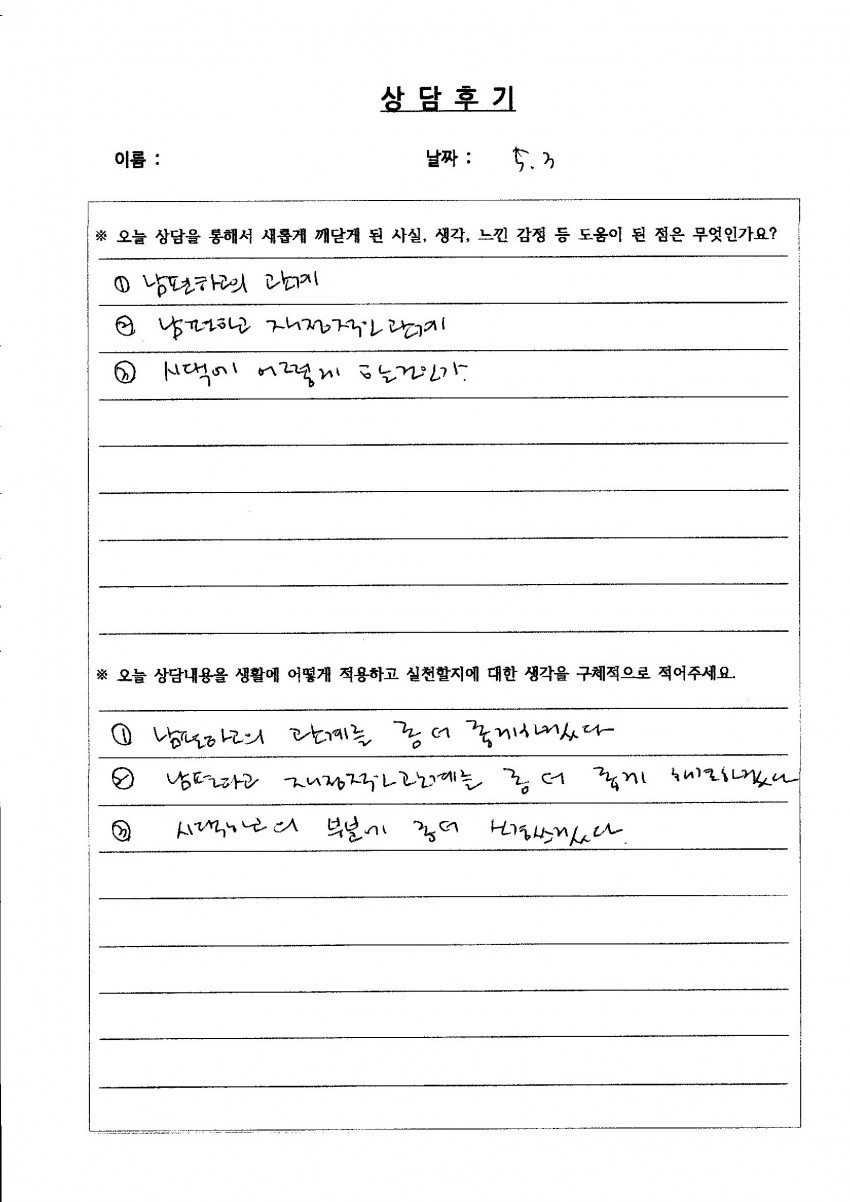 상 담 후 기
이름 : 날짜 : 5. 3
※ 오늘 상담을 통해서 새롭게 깨닫게 된 사실, 생각, 느낀 감정 등 도움이 된 점은 무엇인가요?
① 남편하고의 관계
② 남편하고 재정적인 관계
③ 시댁에 어떻게 하는것인가.
※ 오늘 상담내용을 생활에 어떻게 적용하고 실천할지에 대한 생각을 구체적으로 적어주세요.
① 남편하고의 관계를 좀 더 좋게하겠다
② 남편하고 재정적인 관계는 좀 더 좋게 해결하겠다
③ 시댁하고의 부분에 좀더 신경쓰겠다.